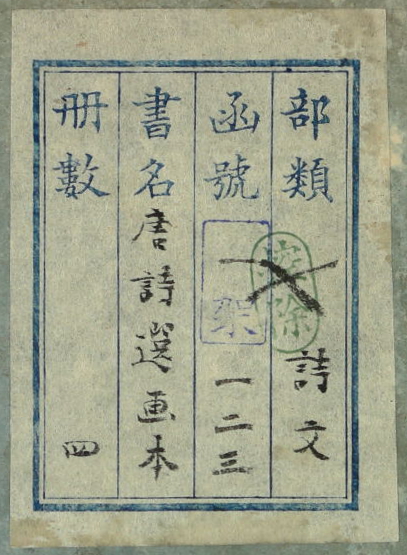 部類 詩文
函號 一二三
書名 唐詩選画本
册數 四